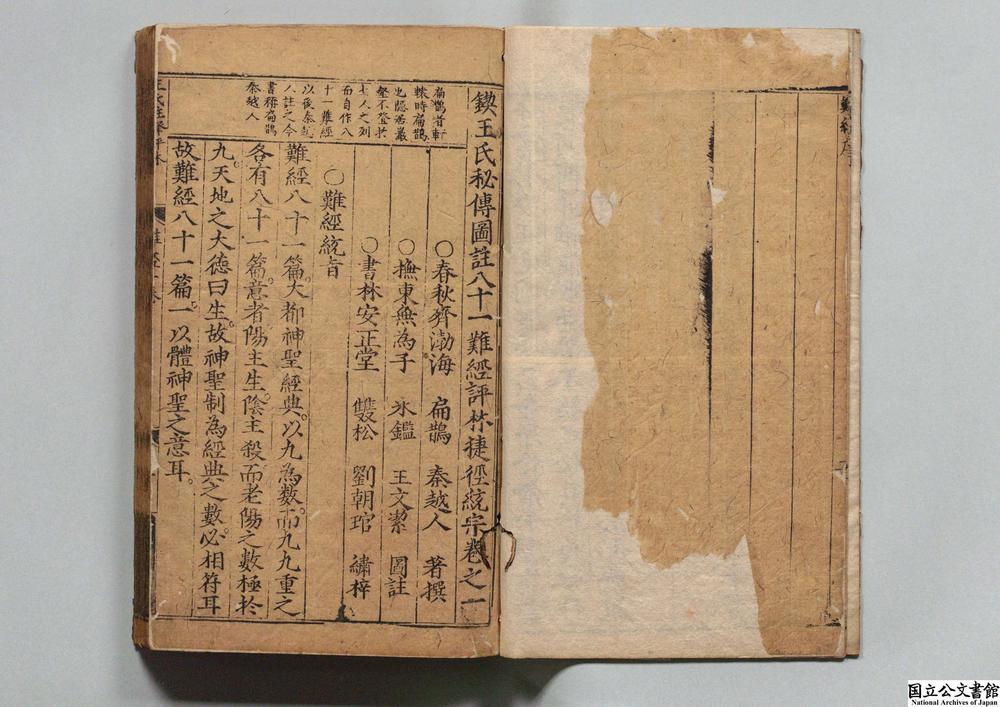 難經序
鍥王氏秘傳圖註八十一難經評林捷徑統宗卷之一
○春秋齊渤海 扁鵲 秦越人 著撰
○撫東無為子 氷鑑 王文潔 圖註
○書林安正堂 雙松 劉朝琯 繡梓
○難經統旨
扁鵲者軒
轅時扁鵲
也隱居巖
壑不登於
七人之列
而自作八
十一難經
以後秦越
人註之今
書稱扁鵲
秦越人
難經八十一篇大都神聖經典以九為數而九九重之
各有八十一篇意者陽主生陰主殺而老陽之數極於
九天地之大德曰生故神聖制為經典之數必相符耳
故難經八十一篇一以體神聖之意耳
国立公文書館
National Archives of Japan